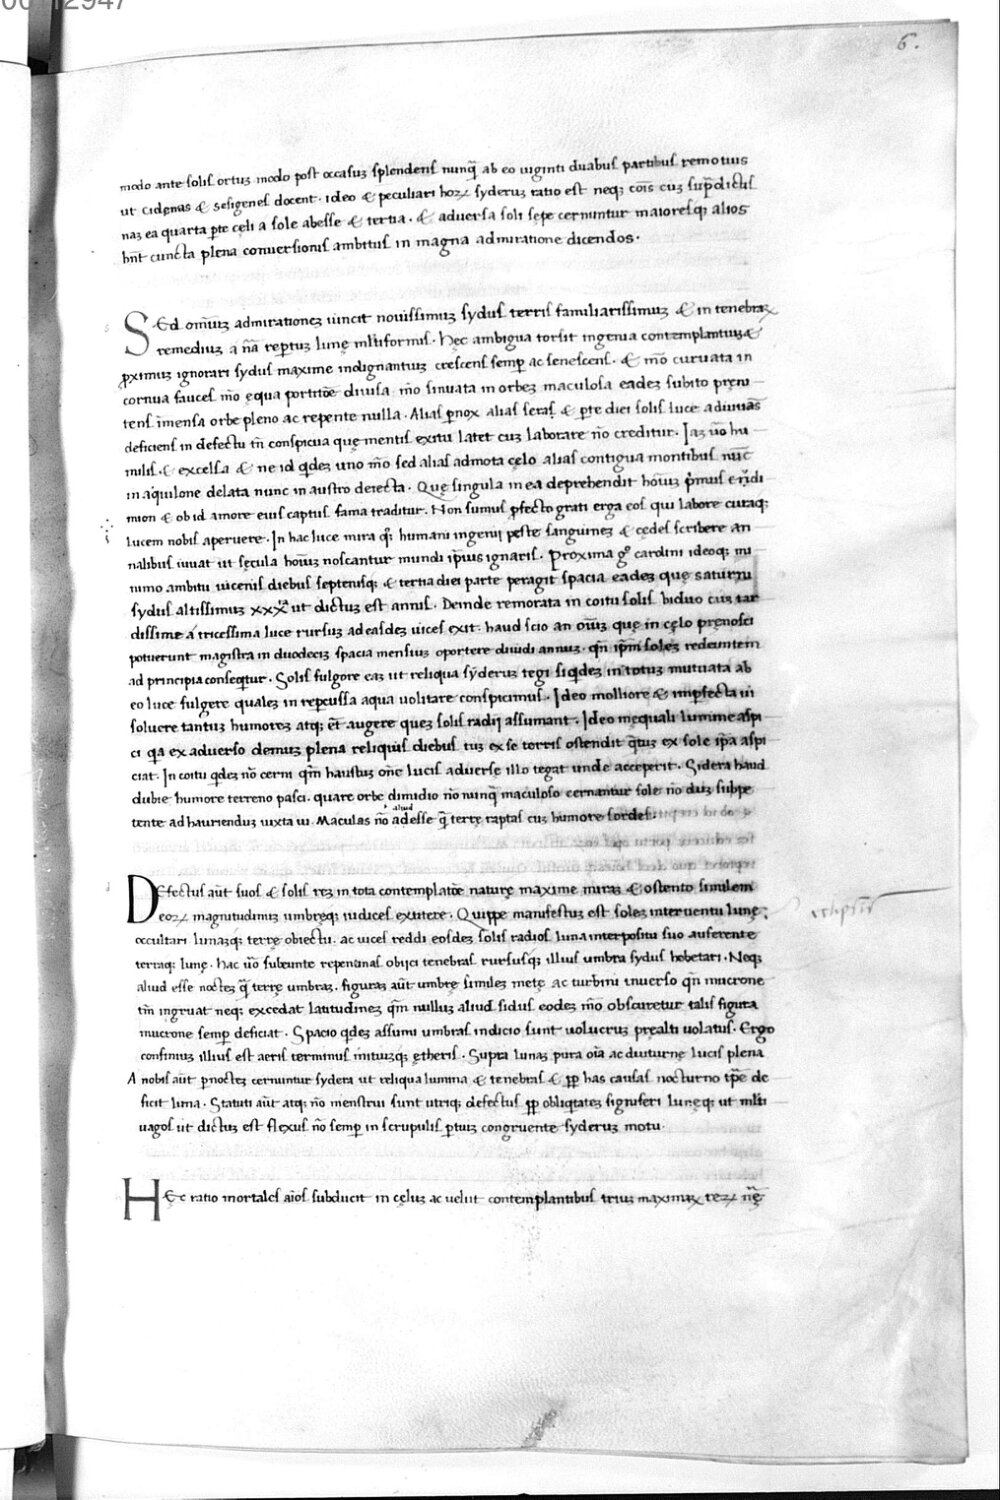 6.
modo ante solis ortuȝ modo post occasuȝ splendens nunq̃ ab eo uiginti duabus partibus remotius
ut cidęnas & sesigenes docent. ideo & peculiari hoꝝ syderuȝ ratio est neqȝ cõis cuȝ sup̃dictis
naȝ ea quarta ꝑte cęli a sole abesse & tertia. & aduersa soli sepe cernuntur maioresqȝ alios
hñt cuncta plena conuersionis ambitus in magna admiratione dicendos.
SEd omĩuȝ admirationeȝ uincit nouissimuȝ sydus terris familiarissimuȝ & in tenebraꝝ
remediuȝ a nã reꝑtuȝ lunę ml̃tiformis. Hęc ambigua torsit ingenia contemplantiuȝ &
ꝓximuȝ ignorari sydus maxime indignantiuȝ crescens semꝑ ac senescens. & mõ curuata in
cornua fauces mõ ęqua portiõe diuisa. mõ sinuata in orbeȝ maculosa eadeȝ subito pręni
tens ĩmensa orbe pleno ac repente nulla. Alias ꝑnox alias seras & ꝑte diei solis luce adiuuãs
deficiens in defectu tñ conspicua quę mentis exitu latet cuȝ laborare nõ creditur. Iaȝ uõ hu
milis. & excelsa & ne id qdeȝ uno mõ sed alias admota cęlo alias contigua montibus nũc
in aquilone delata nunc in austro deiecta. Quę singula in ea deprehendit hoĩuȝ pͥmus endi
mion & ob id amore eius captus fama traditur. Non sumus ꝑfecto grati erga eos qui labore curaqȝ
lucem nobis aperuere. In hac luce mira qȝ humani ingenij peste sanguineȝ & cędes scribere an
nalibus iuuat ut sęcula hoĩuȝ noscantur mundi ip̃ius ignaris. Proxima gͦ cardini ideoqȝ mi
nimo ambitu uicenis diebus septenisqȝ & tertia diei parte peragit spacia eadeȝ que saturni
sydus altissimuȝ xxx ut dictuȝ est annis. Deinde remorata in coitu solis biduo cuȝ tar
dissime a tricessima luce rursus ad easdeȝ uices exit. haud scio an omĩuȝ quę in cęlo pręnosci
potuerunt magistra in duodeciȝ spacia mensiuȝ oportere diuidi annuȝ. qñ ip̃m soleȝ redeuntem
ad principia conseqtur. Solis fulgore eaȝ ut reliqua syderuȝ tegi siqdeȝ in totuȝ mutuata ab
eo luce fulgere qualeȝ in reꝑcussa aqua uolitare conspicimus. Ideo molliore & imꝑfecta ui
soluere tantuȝ humoreȝ atqȝ et̃ augere queȝ solis radij assumant. Ideo inęquali lumine aspi
ci qa ex aduerso demuȝ plena reliquis diebus tuȝ ex se terris ostendit q̃tuȝ ex sole ip̃a aspi
ciat. In coitu qdeȝ nõ cerni qm̃ haustuȝ oñe lucis aduersę illo tegat unde acceperit. Sidera haud
dubie humore terreno pasci. quare orbe dimidio nõ nunq̃ maculoso cernantur sole nõ duȝ suppe
tente ad hauriendũ iuxta ui. Maculas nõ aliud adesse q̃ terrę raptas cuȝ humore sordes.
DEfectus aũt suos & solis reȝ in tota contemplatõe naturę maxime miraȝ & ostento similem
eoꝝ magnitudinuȝ umbręqȝ iudices existere. Quippe manifestuȝ est soleȝ interuentu lunę
occultari lunaȝqȝ terrę obiectu. ac uices reddi eosdeȝ solis radios luna interpositu suo auferente
terraqȝ lunę. hac uõ subeunte repentinas obijci tenebras rursusqȝ illius umbra sydus hebetari. Neqȝ
aliud esse nocteȝ q̃ terrę umbraȝ. figuraȝ aũt umbrę simileȝ metę ac turbini inuerso qñ mucrone
tm̃ ingruat neqȝ excedat latitudineȝ qm̃ nulluȝ aliud sidus eodeȝ mõ obscuretur talis figura
mucrone semꝑ deficiat. Spacio qdeȝ assumi umbras indicio sunt uolucruȝ pręalti uolatus. Ergo
confiniuȝ illius est aeris terminus initiuȝqȝ ętheris. Supra lunaȝ pura oĩa ac diuturnę lucis plena
A nobis aũt ꝑnocteȝ cernuntur sydera ut reliqua lumina & tenebras & ꝓp has causas nocturno tꝑe de
ficit luna. Statuti aũt atqȝ nõ menstrui sunt utriqȝ defectus ꝓp obliqtateȝ signiferi lunęqȝ ut ml̃ti
uagos ut dictuȝ est flexus nõ semꝑ in scrupulis ꝑtiuȝ congruente syderuȝ motu.
HEc ratio mortales aĩos subducit in cęluȝ ac uelut contemplantibus triuȝ maximaꝝ reꝝ nr̃ę